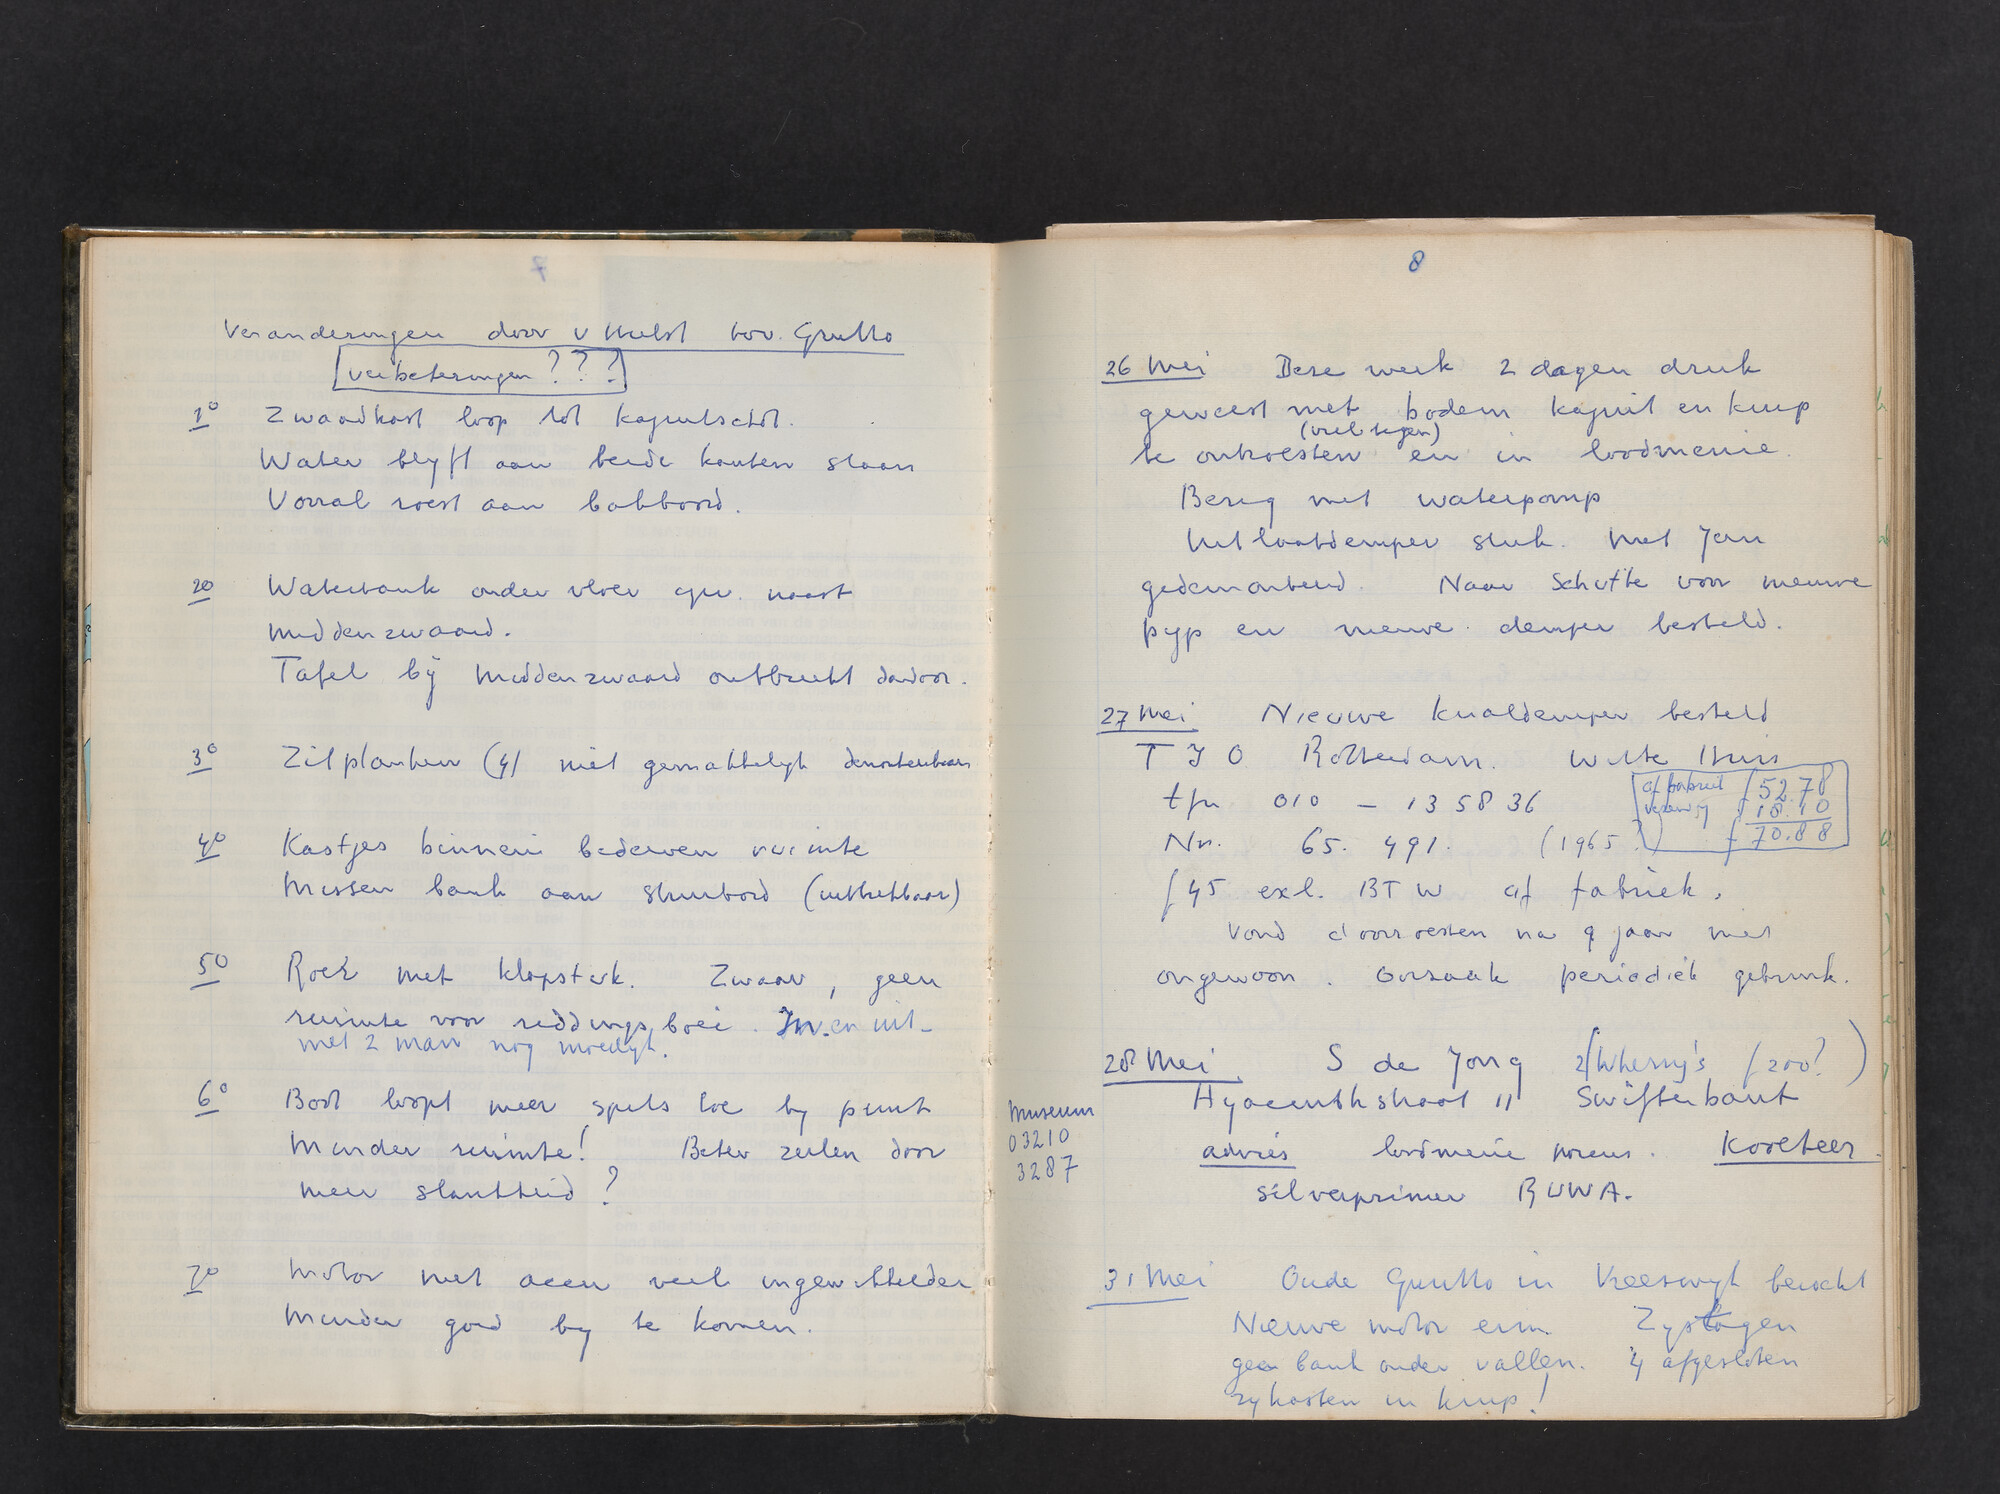 7
Veranderingen door v Hulst t.o.v. Grutto
verbeteringen ? ? ?
1° Zwaardkast loop tot kajuitschot.
Water blyft aan beide kanten staan
Vooral roest aan bakboord.
2° Watertank onder vloer ipv. naast
middenzwaard.
Tafel bij middenzwaard ontbreekt dardoor.
3° Zitplanken (4) niet gemakkelyk demonteerbaar
4° Kastjes binnenin bederven ruimte
Missen bank aan stuurbord (uittrekbaar)
5° Roer met klapstuk. Zwaar, geen
ruimte voor reddingsboei. In en uit-
met 2 man nog moeilyk.
6° Boot loopt meer spits toe by punt
Minder ruimte! Beter zeilen door
meer slankheid?
7° Motor met accu veel ingewikkelder
Minder goed by te komen.
8
26 Mei Deze week 2 dagen druk
geweest met bodem kajuit en kuip
te ontroesten en in loodmenie.
(veel regen)
Bezig met waterpomp
Uitlaatdemper stuk. Met Jan
gedemonteerd. Naar Schutte voor nieuwe
pyp en nieuwe demper besteld.
27 Mei Nieuwe knaldemper besteld
T Y O Rotterdam. Witte Huis
tfn 010 - 13 58 36
af fabriek f 52.78
18.10
f 70.88
Nr. 65. 491. (1965?)
f 45 exl. BTW af fabriek.
Vond doorroesten na 9 jaar niet
ongewoon. Oorzaak periodiek gebruik.
28 Mei S de Jong 2 Wherry's f 200?)
Hyacinthstraat 11 Swifterbant
advies loodmenie poreus. Koolteer.
silverprimer RUWA.
Museum
03210
3287
31 Mei Oude Grutto in Vreeswyk bezocht
Nieuwe motor erin. Zystagen
geen bank onder vallen. 4 afgesloten
zykasten in kuip!